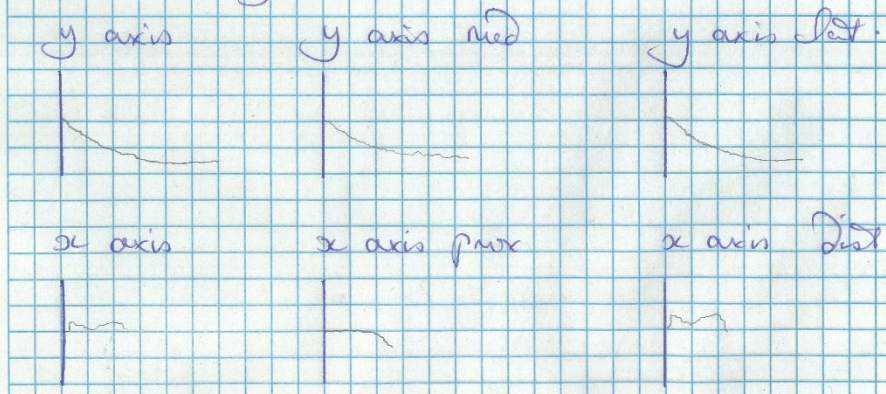 y axis y axis med y axis lat.
x axis x axis prox x axis Dist